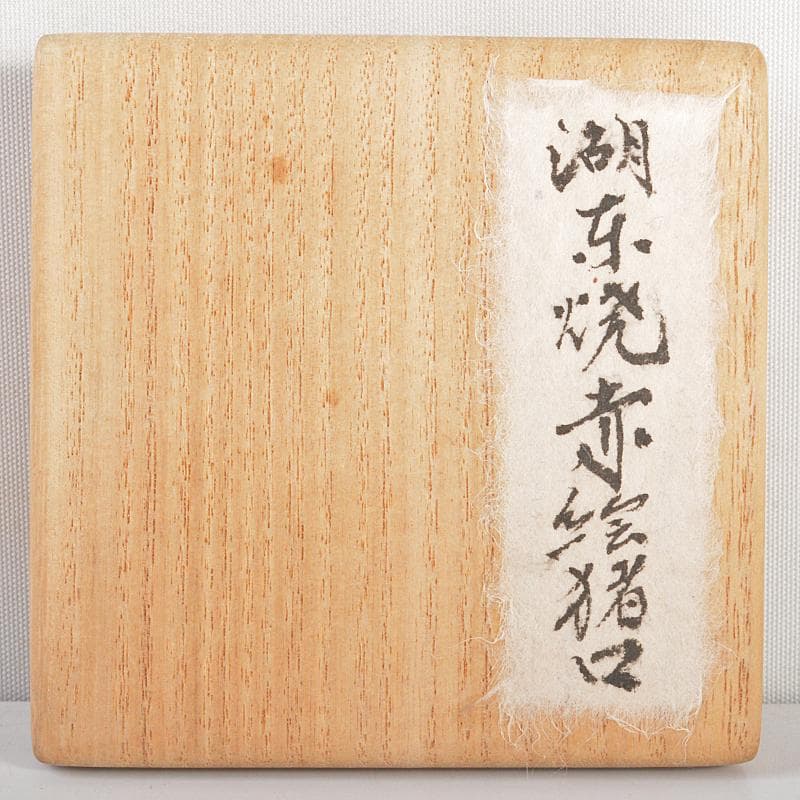 湖东焼赤絵猪口